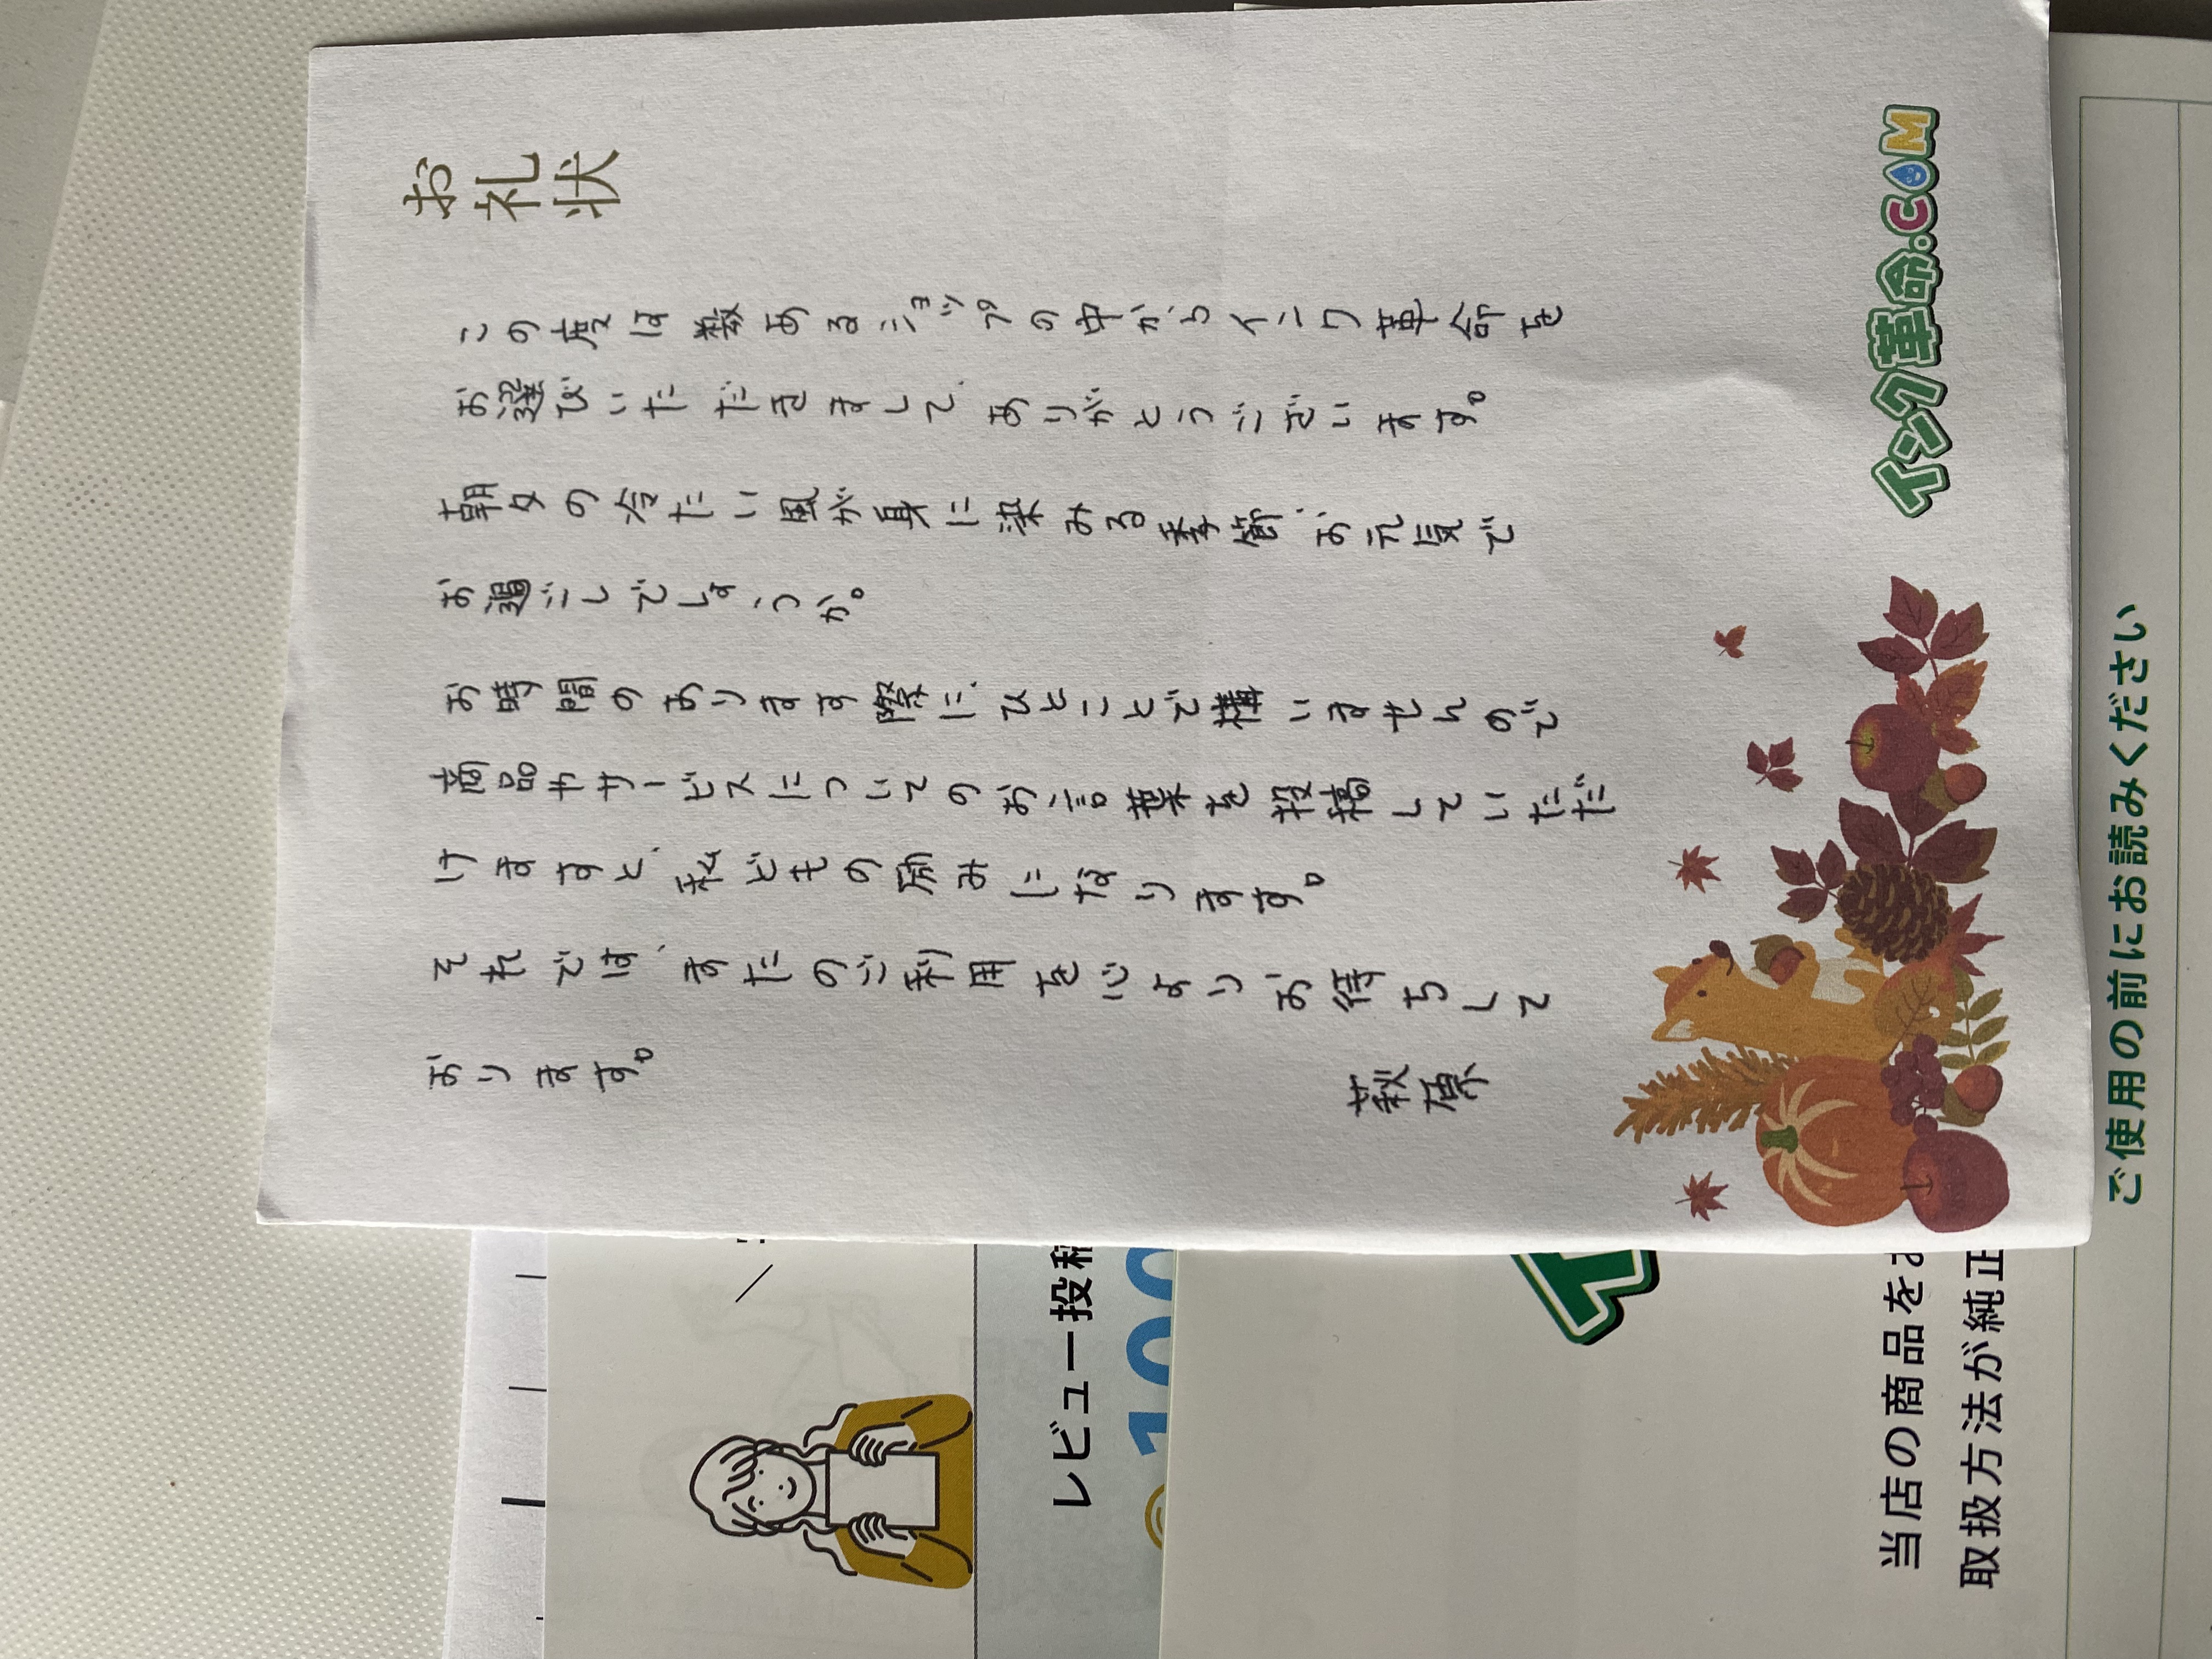 お礼状
この度は数あるショップの中からインク革命を
お選びいただきまして、ありがとうございます。
朝夕の冷たい風が身に染みる季節、お元気で
お過ごしでしょうか。
お時間のあります際に、ひとことで構いませんので
商品やサービスについてのお言葉を投稿していただ
けますと、私どもの励みになります。
それでは、またのご利用を心よりお待ちして
おります。
萩原
インク革命.COM
レビュー投稿
100
当店の商品をお
取扱方法が純正
ご使用の前にお読みください